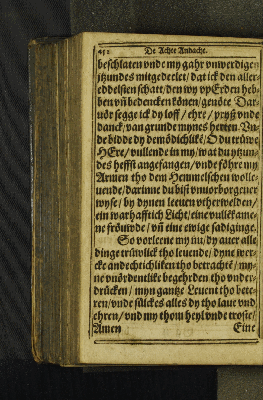 De Achte Andacht.
beschlaten vnde my gahr vnwerdigen
itzundes mitgedeelet/ dat ick den aller-
eddelsten schatt/ den wy vp Erden heb-
ben vñ bedencken könen/ genöte Dar-
uör segge ick dy loff / ehre / pryß vnde
danck/ van grunde mynes herten. Vn-
de bidde dy demödichlikē/ O du trüwe
HEre/ vullende in my/ wat du ytzun-
des hefft angefangen/ vnde föhre my
Armen tho dem Hemmelschen wolle-
uende/ darinne du bist vnuorborgener
wyse/ by dynen leeuen vtherwelden/
ein warhafftich Licht/ eine vullēkame-
ne fröuwde / vñ eine ewige sadiginge.
So vorleene my nu/ dy auer alle
dinge trüwlick tho leuende/ dyne wer-
cke andechtichliken tho betrachtē/ my-
ne vnördentlike begehrden tho vnder-
drücken / myn gantze Leuent tho bete-
ren/ vnde sülckes alles dy tho laue vnd
ehren/ vnd my thom heyl vnde troste/
Amen Eine